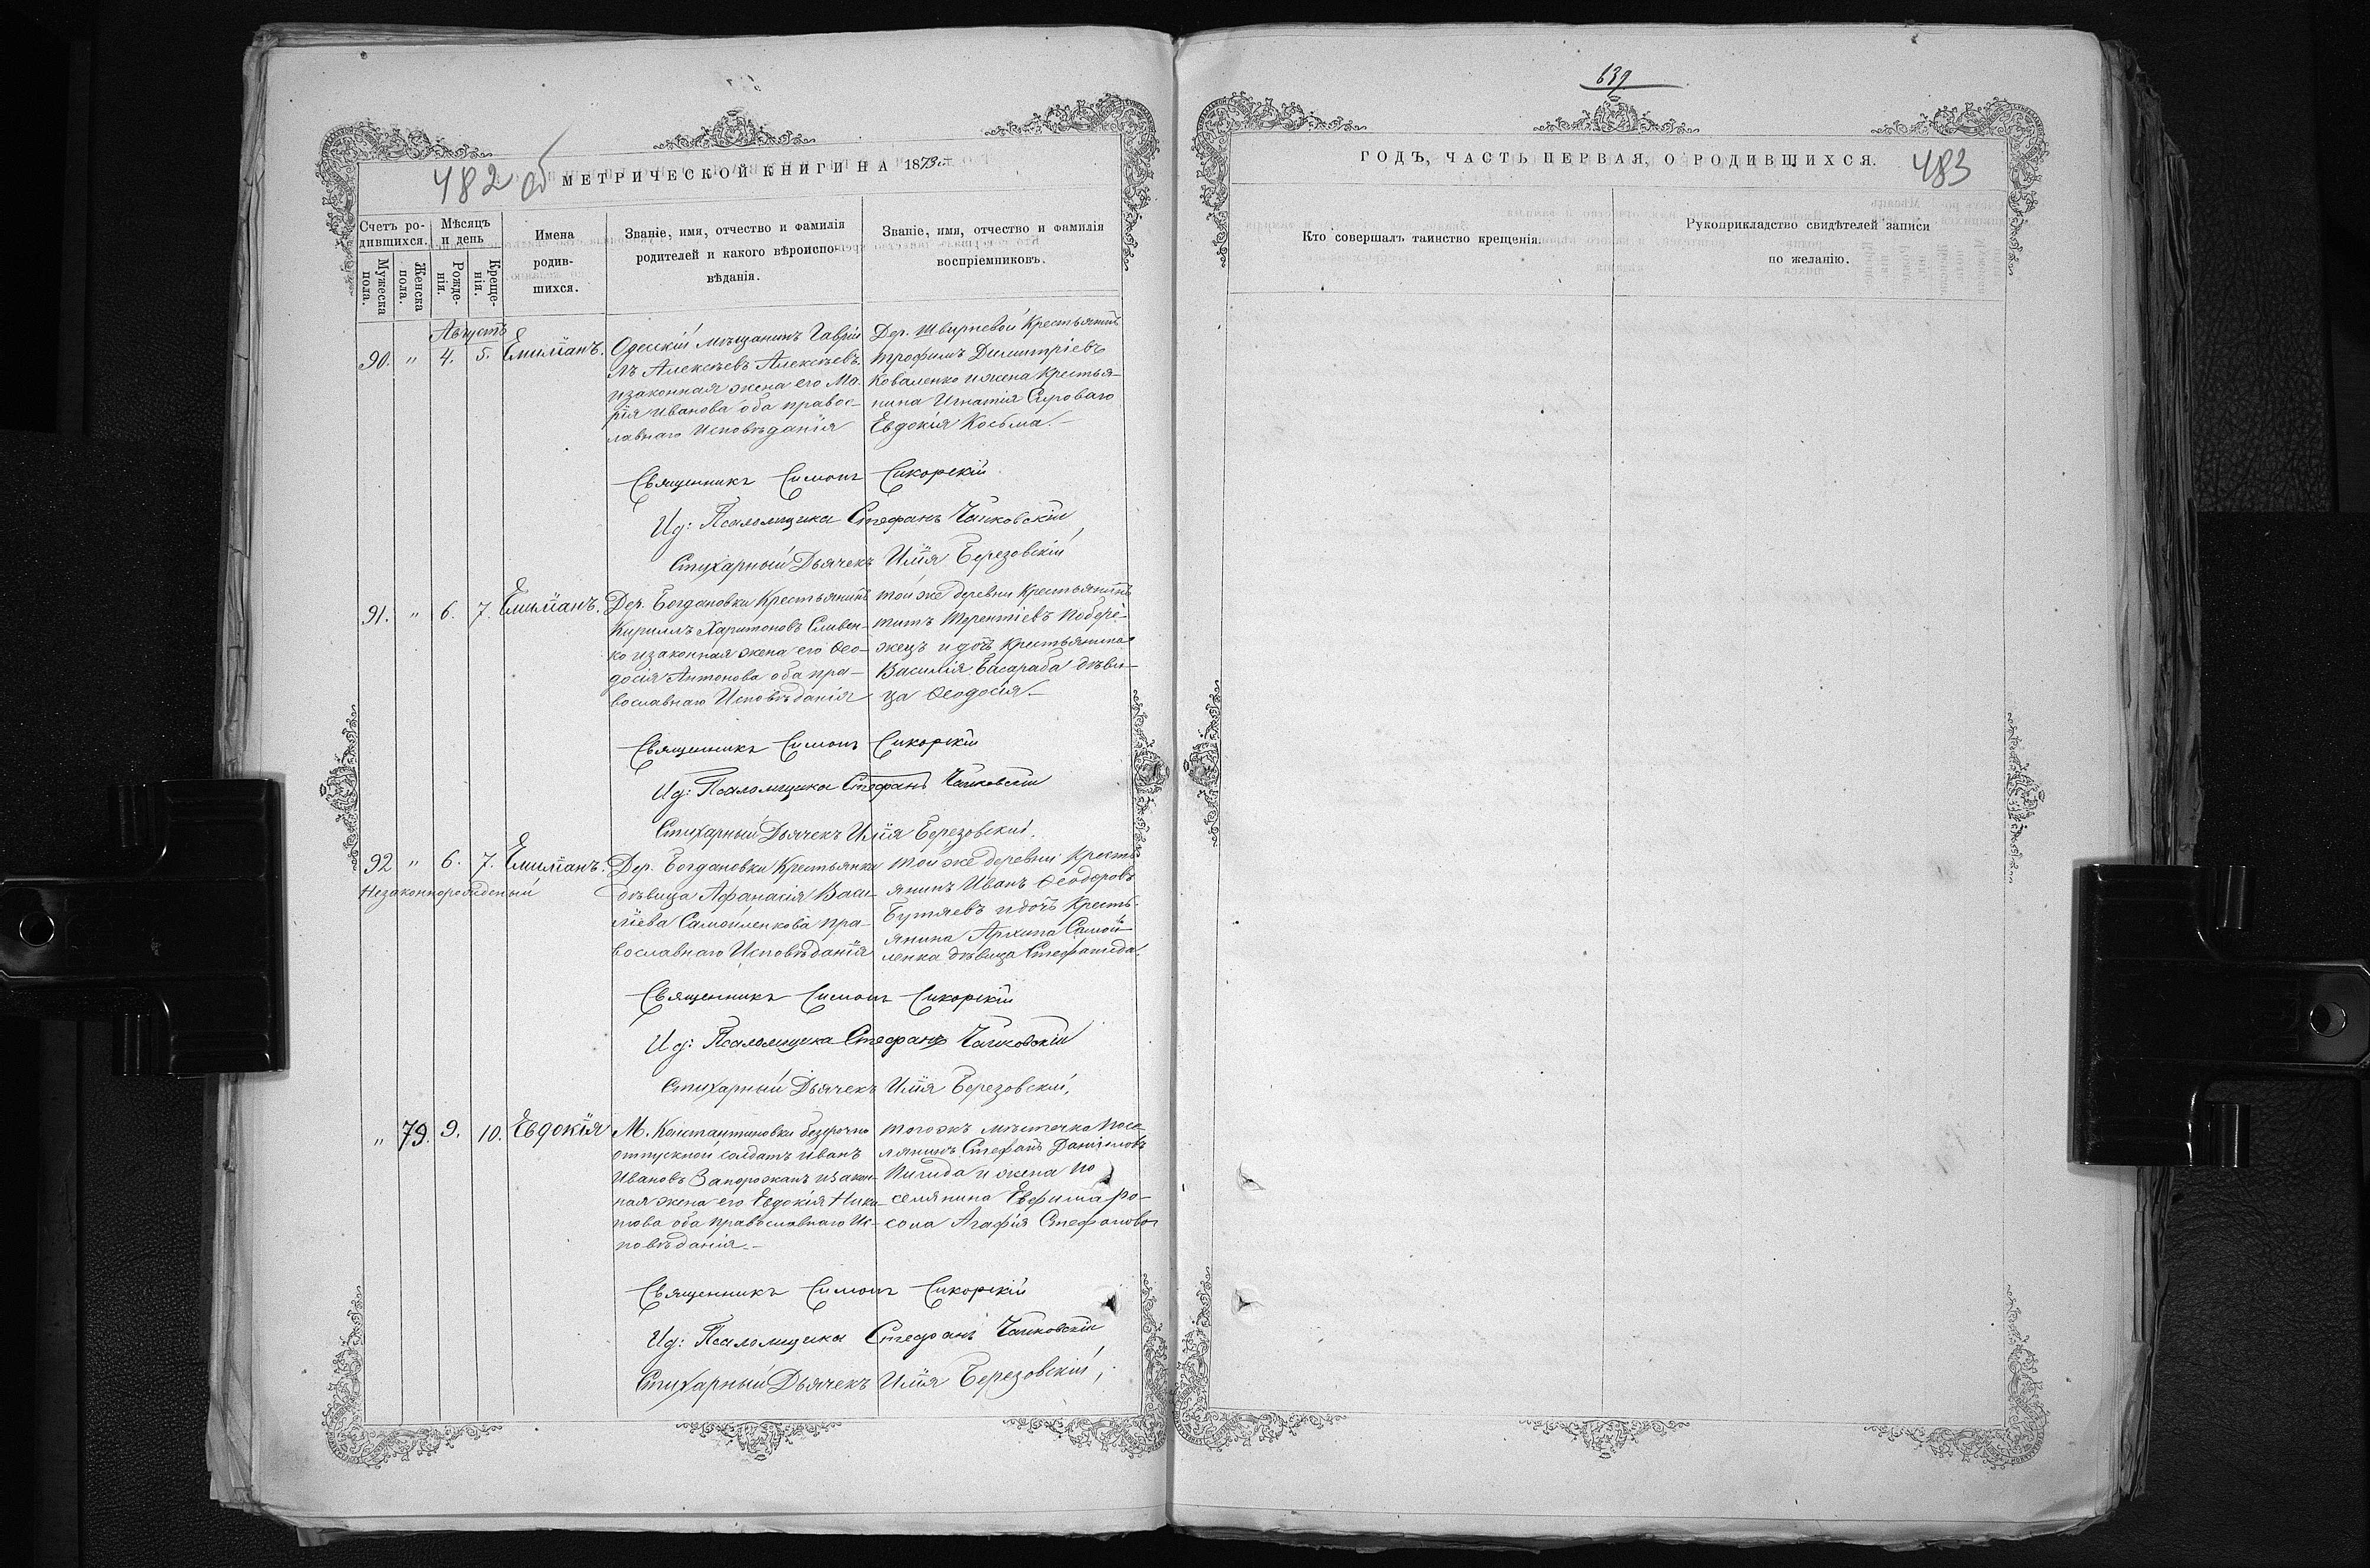 639
482 об
МЕТРИЧЕСКОЙ КНИГИ НА 1873
ГОДЪ, ЧАСТЬ ПЕРВАЯ, О РОДИВШИХСЯ.
483
Счетъ ро-
дившихся.
Мужеска
пола.
Женска
пола.
Мѣсяцъ
и день
Рожде-
нія.
Креще-
нія.
Имена
родив-
шихся.
Званіе, имя, отчество и фамилія
родителей и какого вѣроиспо-
вѣданія.
Званіе, имя, отчество и фамилія
воспріемниковъ.
Кто совершалъ таинство крещенія.
Рукоприкладство свидѣтелей записи
по желанію.
Августъ
90. " 4. 5. Емиліанъ.
Одесскій мѣщанинъ Гавріи
лъ Алексѣевъ Алексѣевъ
изаконная жена его Ма-
рія Иванова оба правос-
лавнаго Исповѣданія
Дер. Швирневой Крестьянинъ
Трофимъ Димитріевъ
Коваленко и жена Крестья-
нина Игнатія Сироваго
Евдокія Косьма.
Священникъ Симонъ Сикорскій
Ид: Псаломщика Стефанъ Чайковскій
Стихарный Дьячекъ Илія Березовскій
91. " 6. 7. Емиліанъ.
Дер. Богдановки Крестьянинъ
Кириллъ Харитоновъ Сливен-
ко изаконная жена его Ѳео-
досія Антонова оба пра-
вославнаго Исповѣданія
той же деревни Крестьянинъ
Титъ Терентіевъ Побере-
жецъ и дочь Крестьянина
Василія Басараба дѣви-
ца Ѳеодосія.
Священникъ Симонъ Сикорскій
Ид: Псаломщика Стефанъ Чайковскій
Стихарный Дьячекъ Илія Березовскій.
92 " 6. 7. Емиліанъ.
Незаконнорожденый
Дер. Богдановки Крестьянка
дѣвица Афанасія Васи-
ліева Самойленкова пра-
вославнаго Исповѣданія
той же деревни Кресть
янинъ Иванъ Ѳеодоровъ
Бутяевъ и дочь Кресть-
янина Архипа Самой-
ленка дѣвица Стефанида.
Священникъ Симонъ Сикорскій
Ид: Псаломщика Стефанъ Чайковскій
Стихарный Дьячекъ Илія Березовскій.
" 79. 9. 10. Евдокія
М. Константиновки безсрочно
отпускной солдатъ Иванъ
Ивановъ Запорожанъ изакон-
ная жена его Евдокія Ники-
това оба православнаго Ис-
повѣданія.
тогожъ мѣстечка Посе-
лянинъ Стефанъ Даниловъ
Пигида и жена По
селянина Евфима Ро-
сола Агафія Стефанова
Священникъ Симонъ Сикорскій
Ид: Псаломщика Стефанъ Чайковскій
Стихарный Дьячекъ Илія Березовскій,